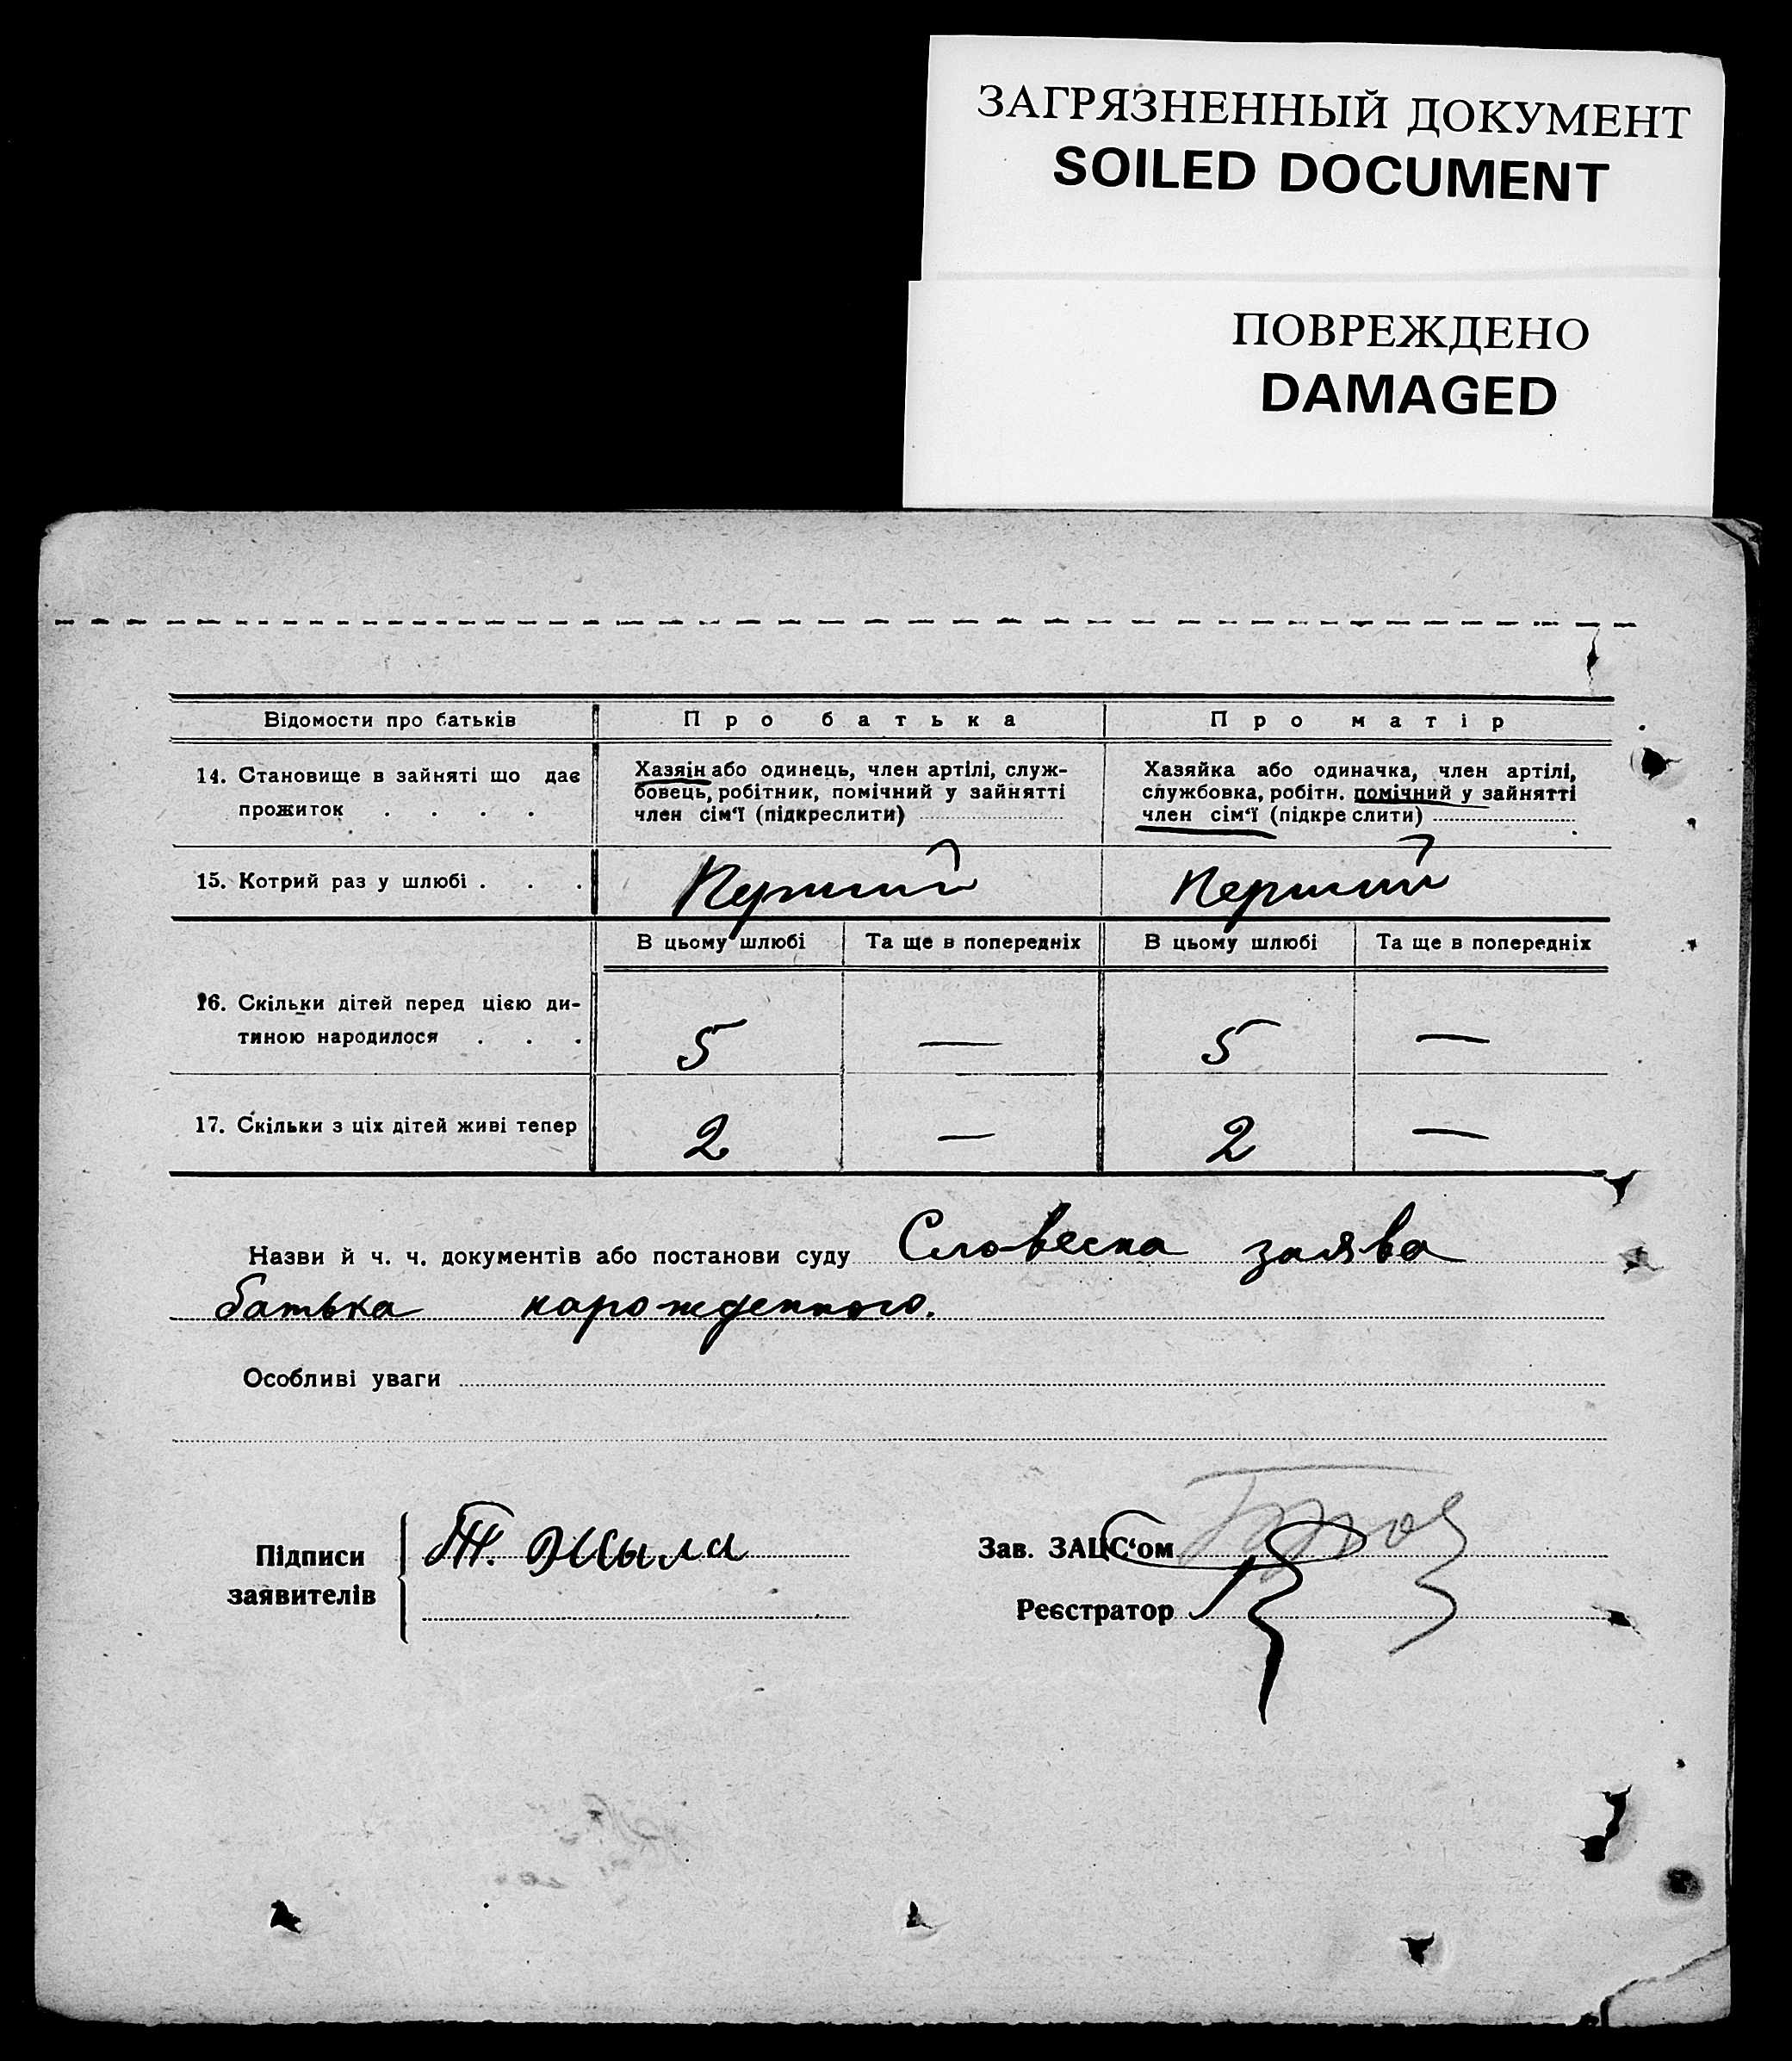 ЗАГРЯЗНЕННЫЙ ДОКУМЕНТ
SOILED DOCUMENT
ПОВРЕЖДЕНО
DAMAGED
Відомости про батьків Про батька Про матір
14. Становище в зайняті що дає прожиток . . . .
Хазяін або одинець, член артілі, служ-
бовець, робітник, помічний у зайнятті
член сім‘ї (підкреслити)
Хазяйка або одиначка, член артілі,
службовка, робітн. помічний у зайнятті
член сім‘ї (підкреслити)
15. Котрий раз у шлюбі . . . Перший Перший
В цьому шлюбі Та ще в попередніх В цьому шлюбі Та ще в попередніх
16. Скільки дітей перед цією ди-
тиною народилося . . . 5 — 5 —
17. Скільки з ціх дітей живі тепер 2 — 2 —
Назви й ч. ч. документів або постанови суду Словесна заява
батька нарожденного.
Особливі уваги
Підписи
заявителів
Т. Жыла
Зав. ЗАЦС‘ом
Реєстратор